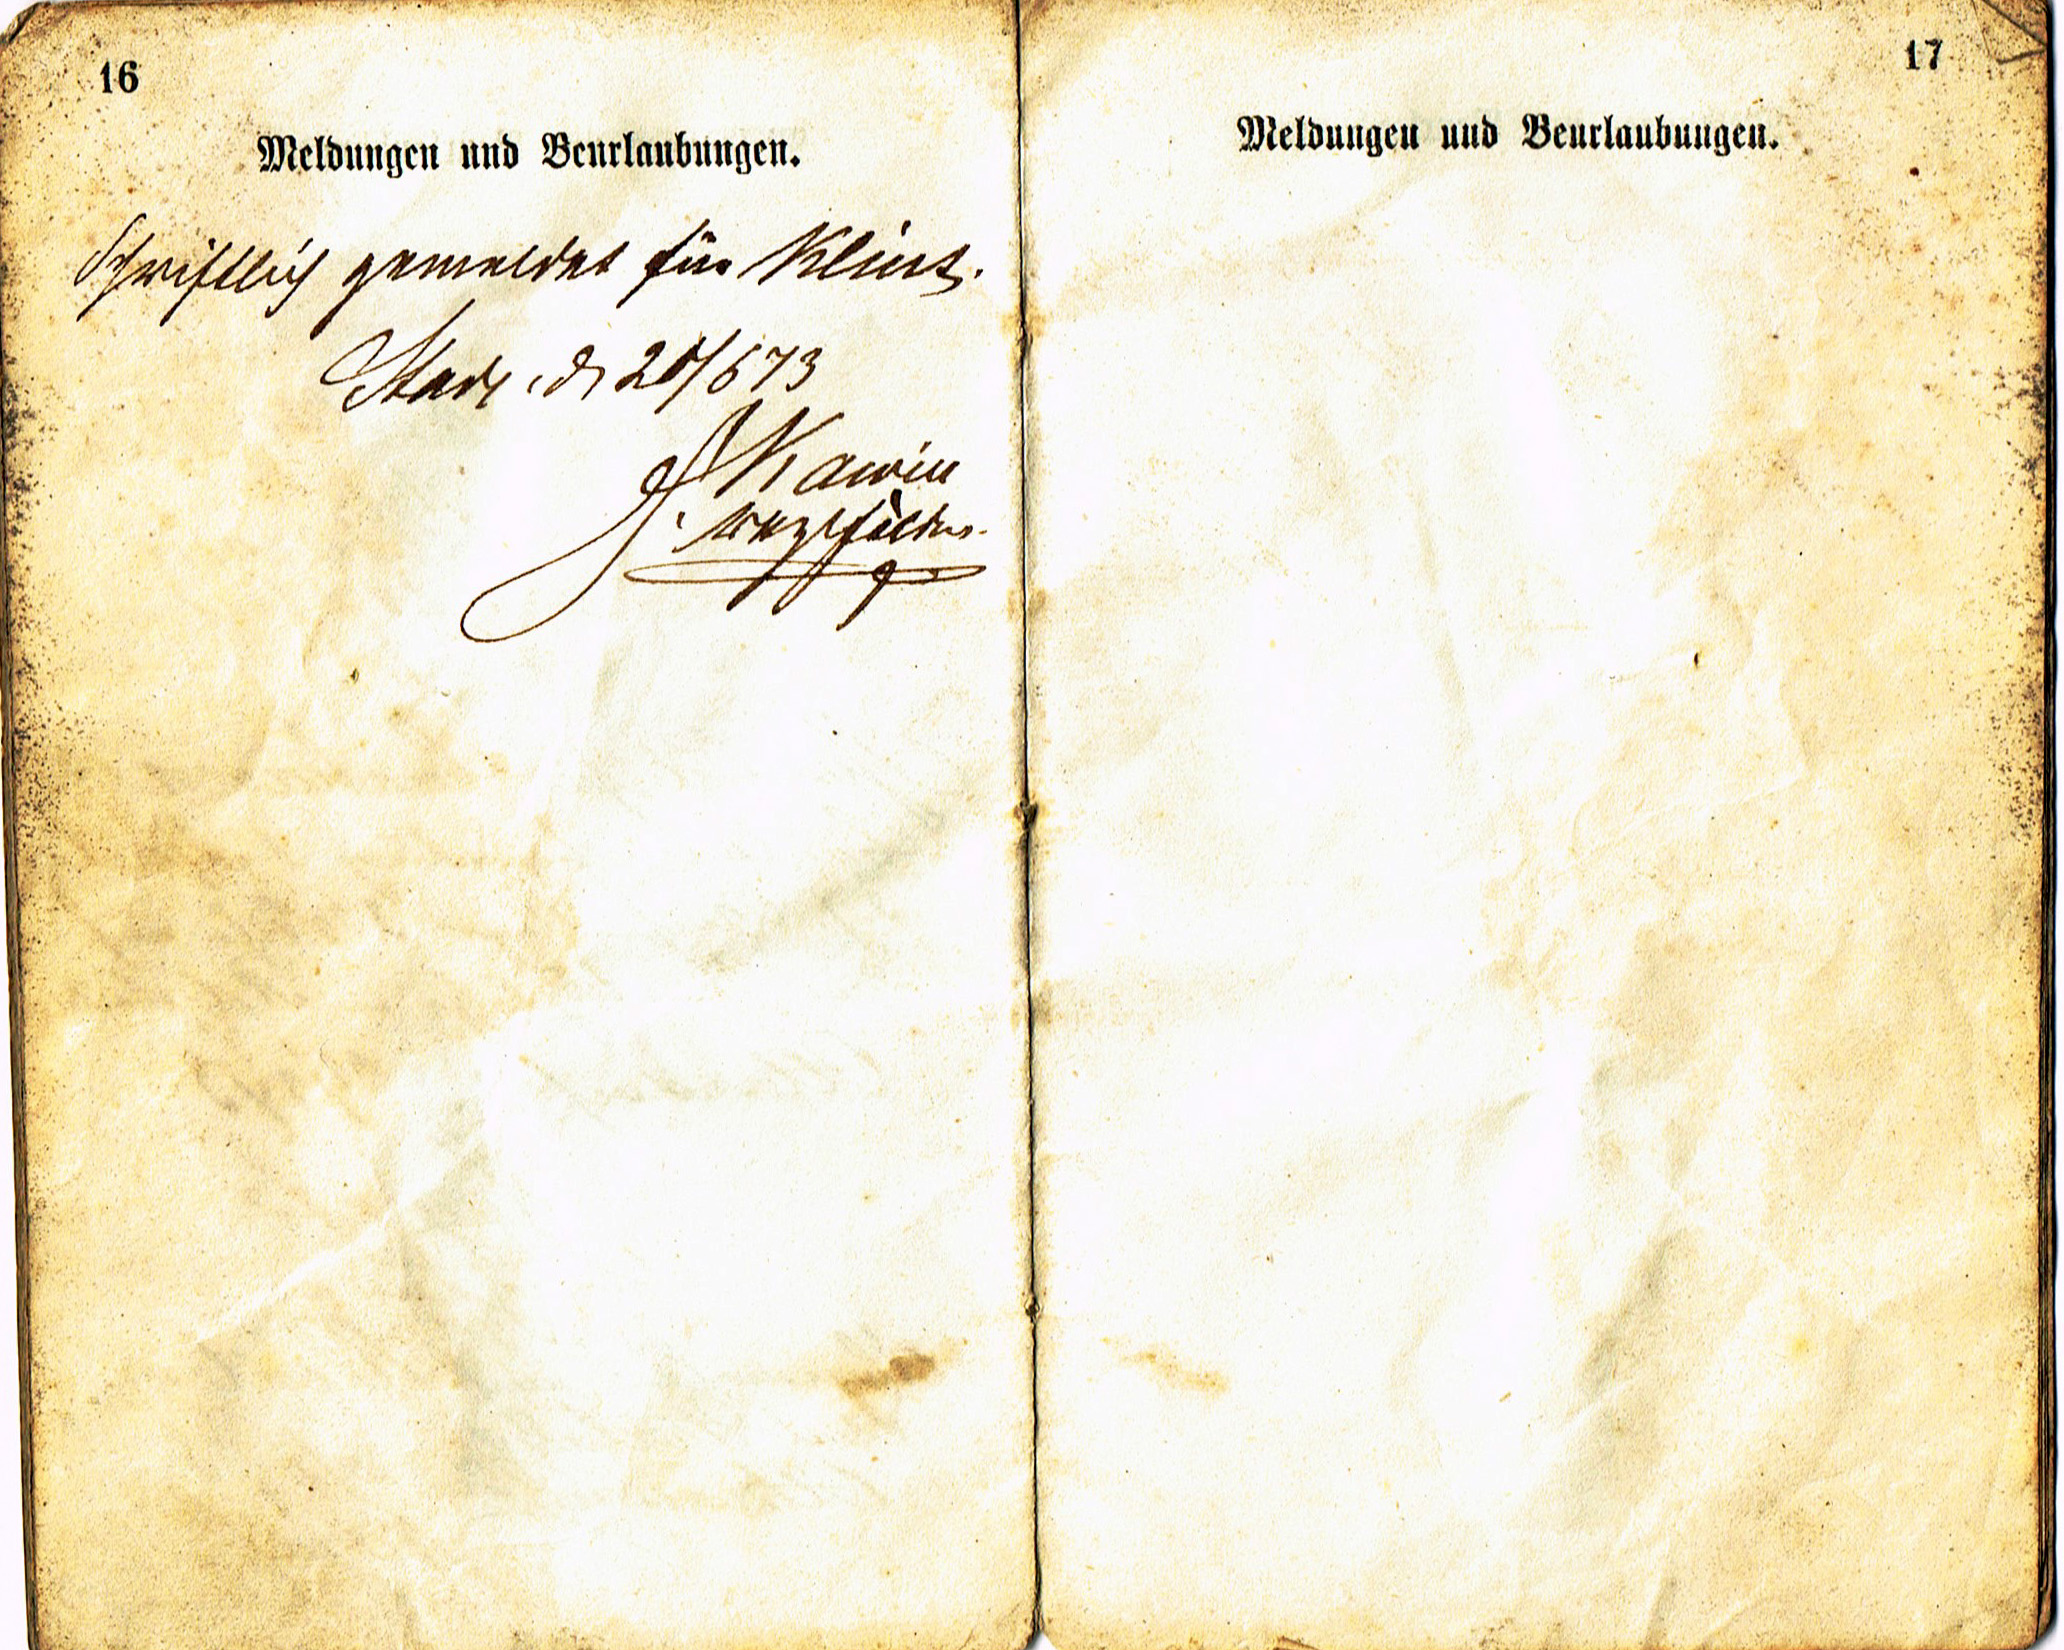 16
Meldungen und Beurlaubungen.
Schriftlich gemeldet für Klint.
Stade, d 20/6 73
Bezfeldw.
17
Meldungen und Beurlaubungen.